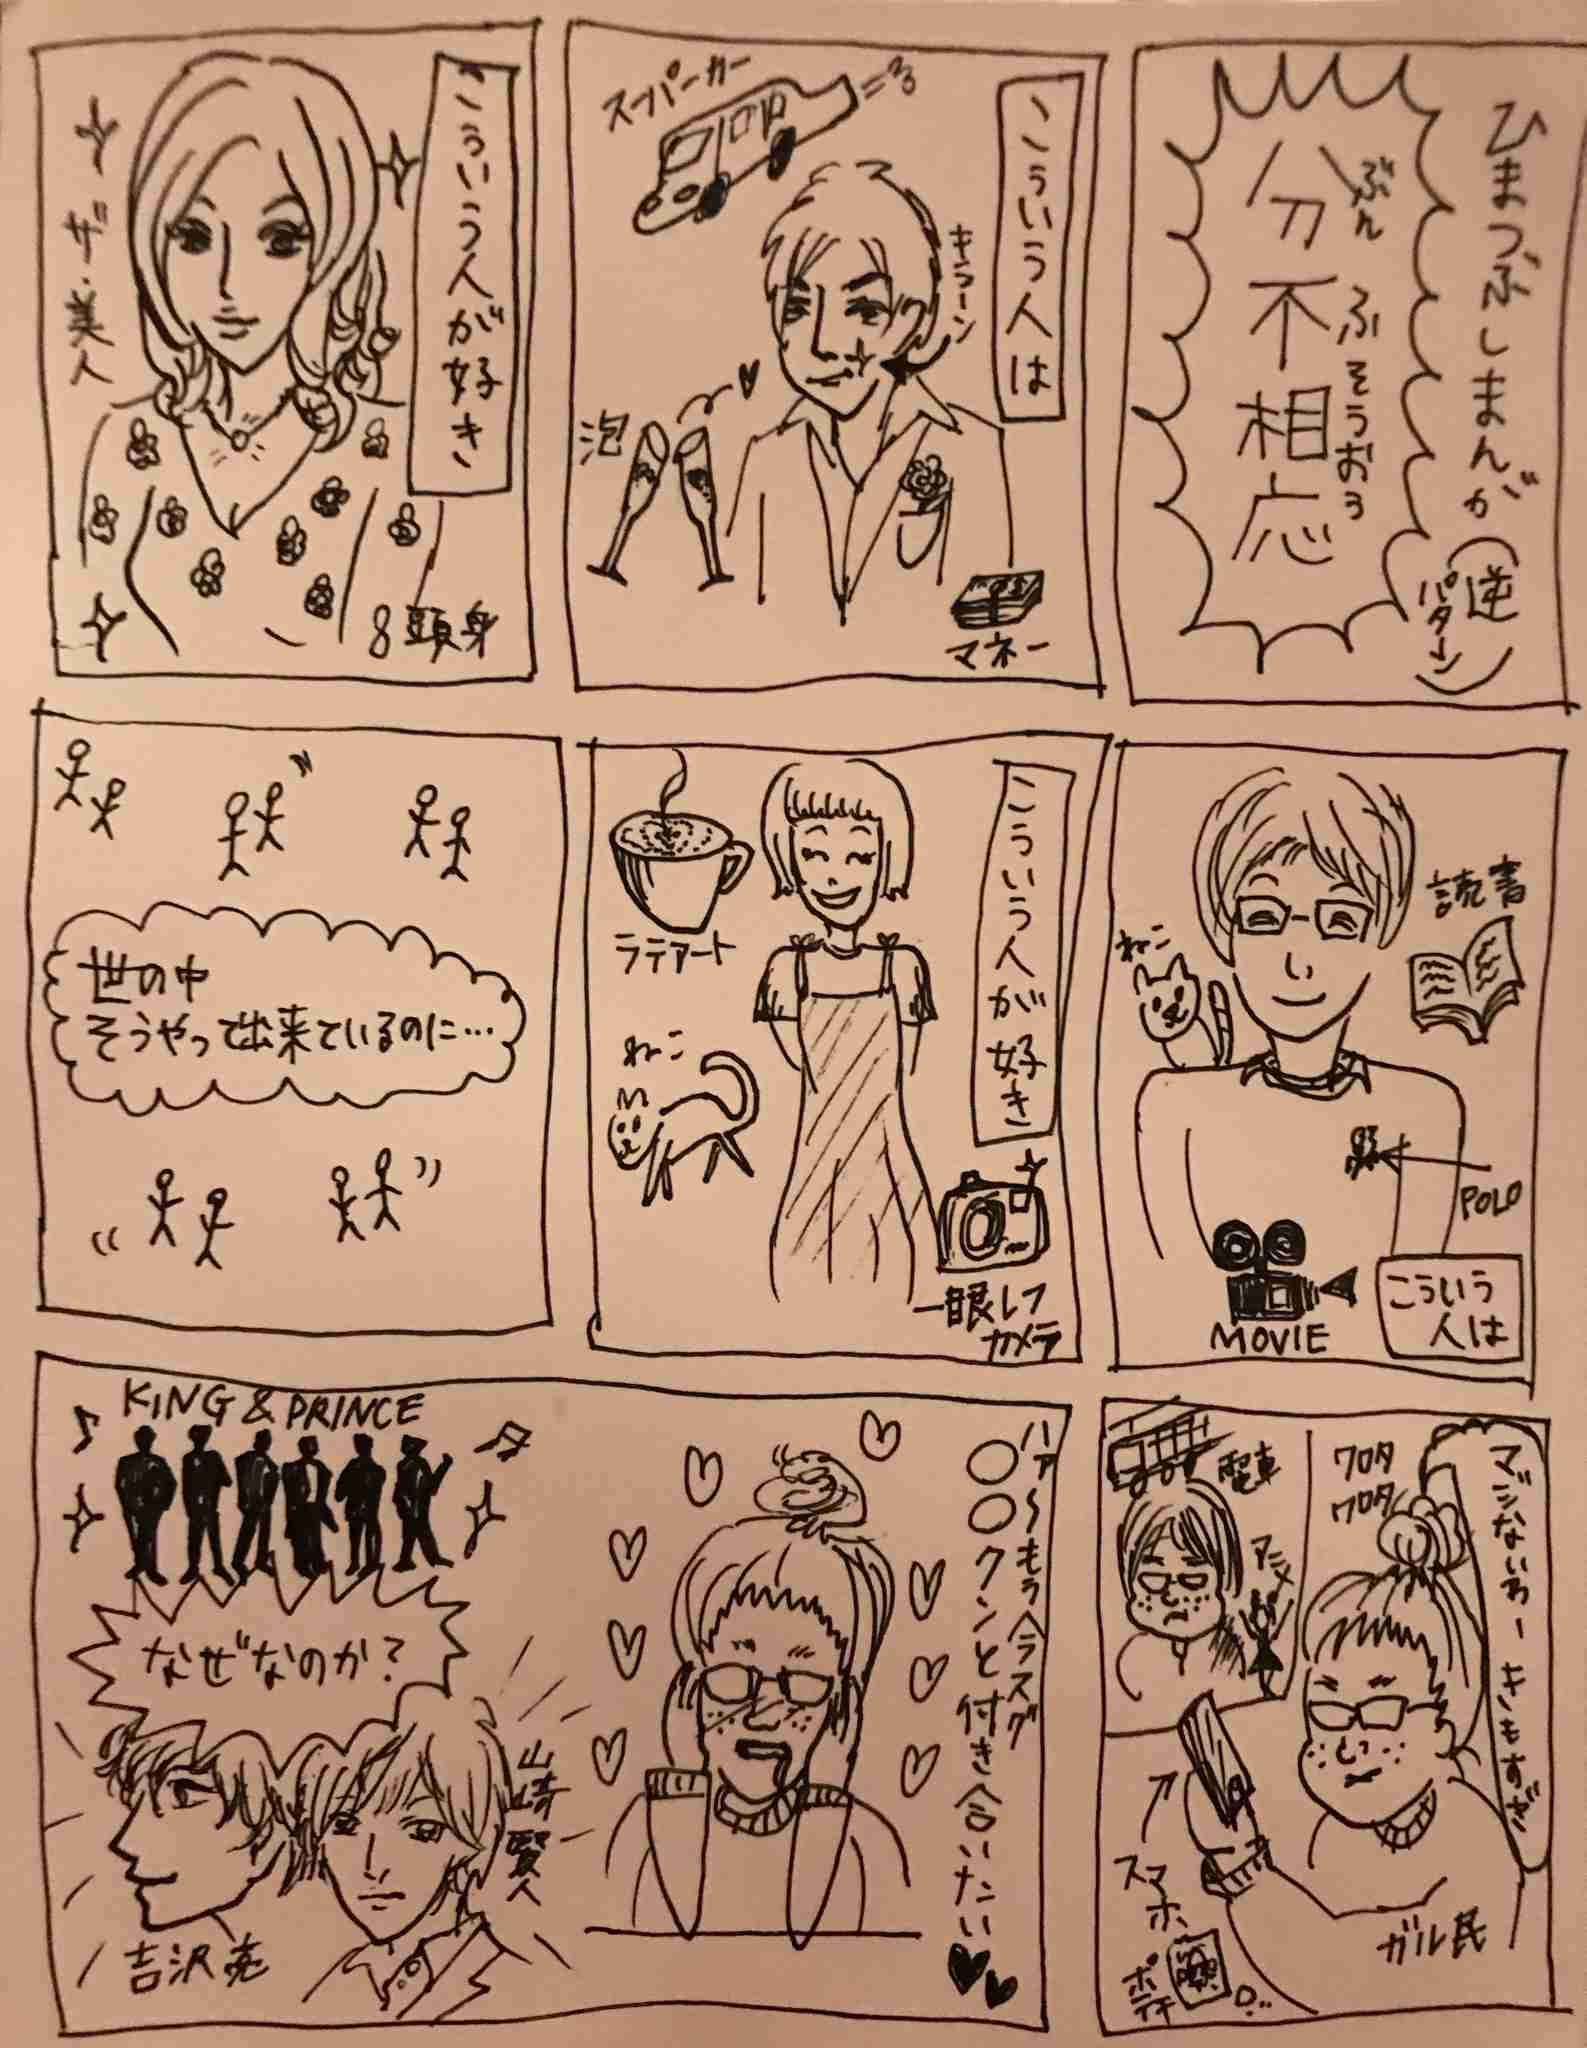 ひまつぶしまんが
(逆パターン)
ぶん ふそうおう
分不相応
こういう人は
スーパーカー
キラーン
泡
マネー
こういう人が好き
ザ・美人
8頭身
読書
ねこ
POLO
MOVIE
こういう人は
こういう人が好き
ラテアート
ねこ
一眼レフ
カメラ
世の中
そうやって出来ているのに…
マジないわーきもすぎ
ワロタ
ワロタ
電車
アニメ
スマホ
ポテチ
ガル民
ハァ〜もう今スグ
〇〇クンと付き合いたい
KING & PRINCE
なぜなのか?
山﨑賢人
吉沢亮